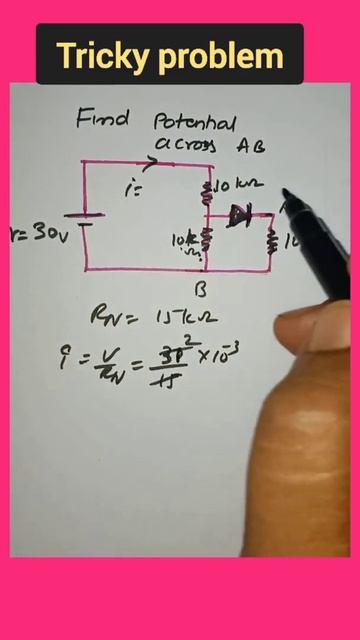 Tricky problem
Find Potenhal
across AB
i=
10 kΩ
v=30v
10k
Ω
10
B
RN= 15kΩ
i = V/RN = 30/15 2 ×10-3